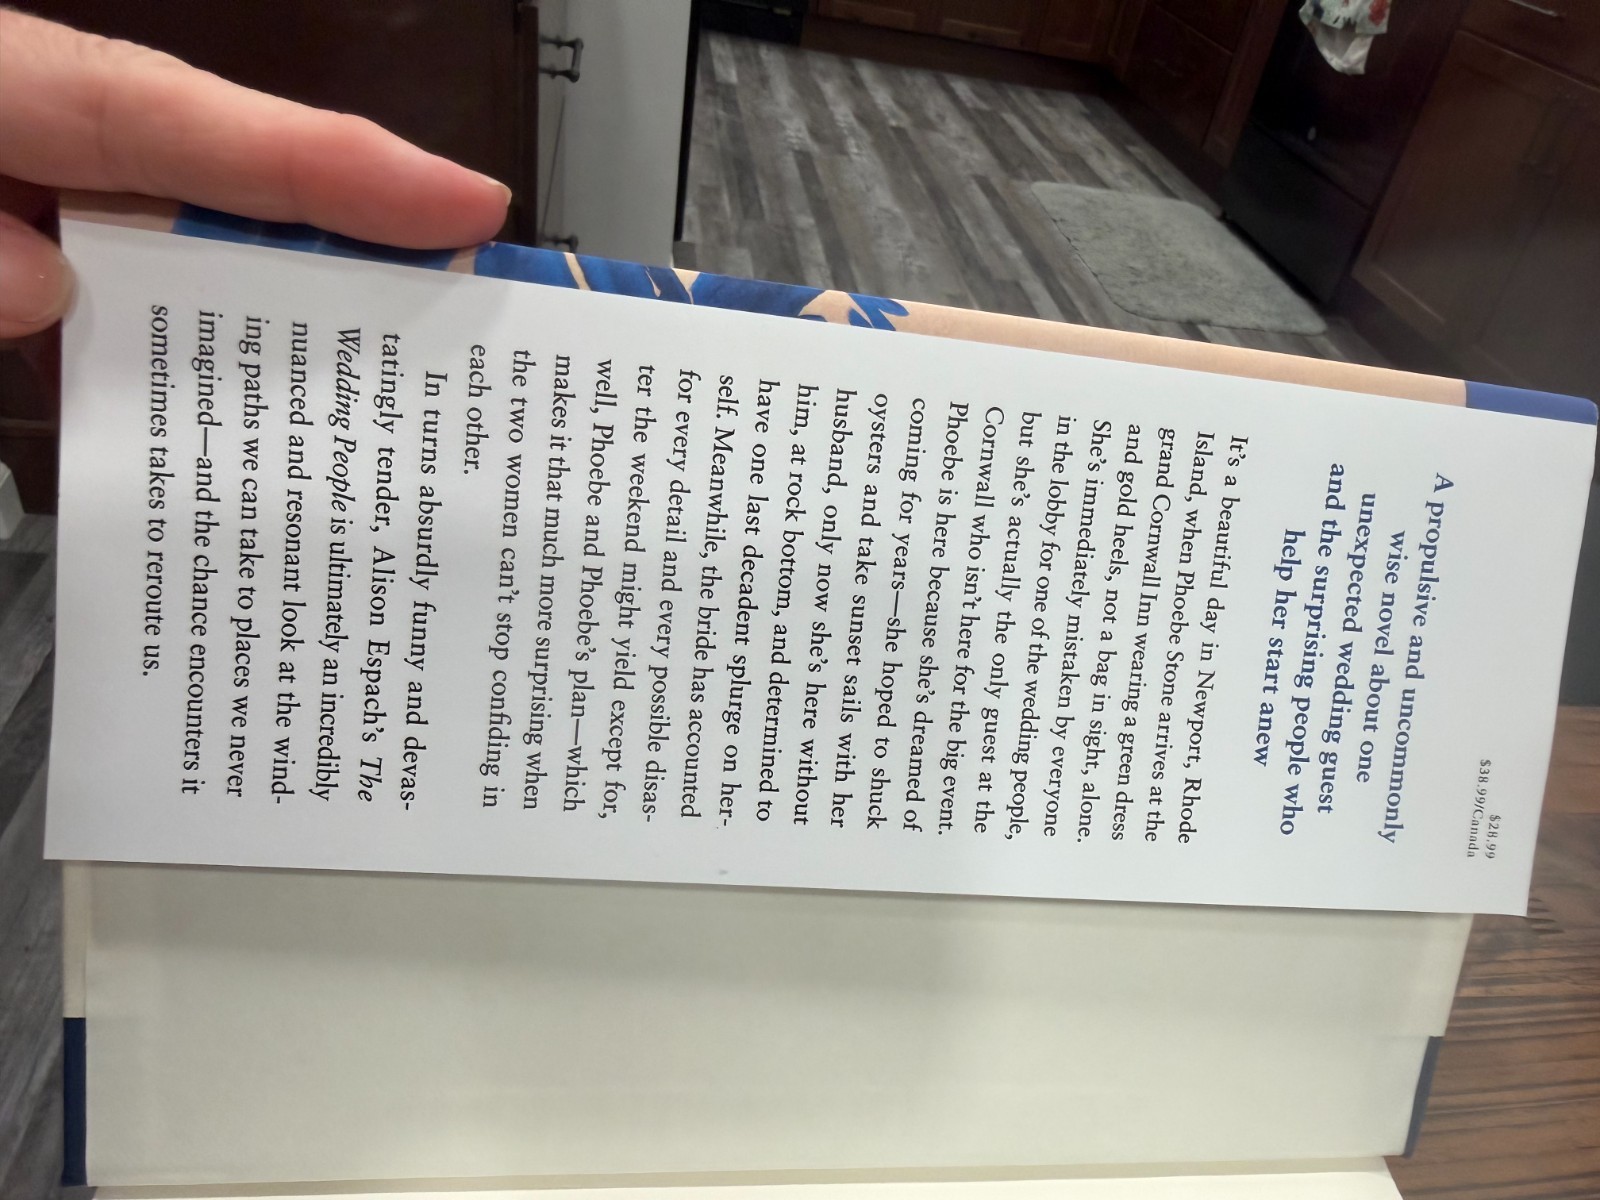 $28.99
$38.99/Canada
A propulsive and uncommonly
wise novel about one
unexpected wedding guest
and the surprising people who
help her start anew
It's a beautiful day in Newport, Rhode
Island, when Phoebe Stone arrives at the
grand Cornwall Inn wearing a green dress
and gold heels, not a bag in sight, alone.
She's immediately mistaken by everyone
in the lobby for one of the wedding people,
but she's actually the only guest at the
Cornwall who isn't here for the big event.
Phoebe is here because she's dreamed of
coming for years—she hoped to shuck
oysters and take sunset sails with her
husband, only now she's here without
him, at rock bottom, and determined to
have one last decadent splurge on her-
self. Meanwhile, the bride has accounted
for every detail and every possible disas-
ter the weekend might yield except for,
well, Phoebe and Phoebe's plan—which
makes it that much more surprising when
the two women can't stop confiding in
each other.
In turns absurdly funny and devas-
tatingly tender, Alison Espach's The
Wedding People is ultimately an incredibly
nuanced and resonant look at the wind-
ing paths we can take to places we never
imagined—and the chance encounters it
sometimes takes to reroute us.